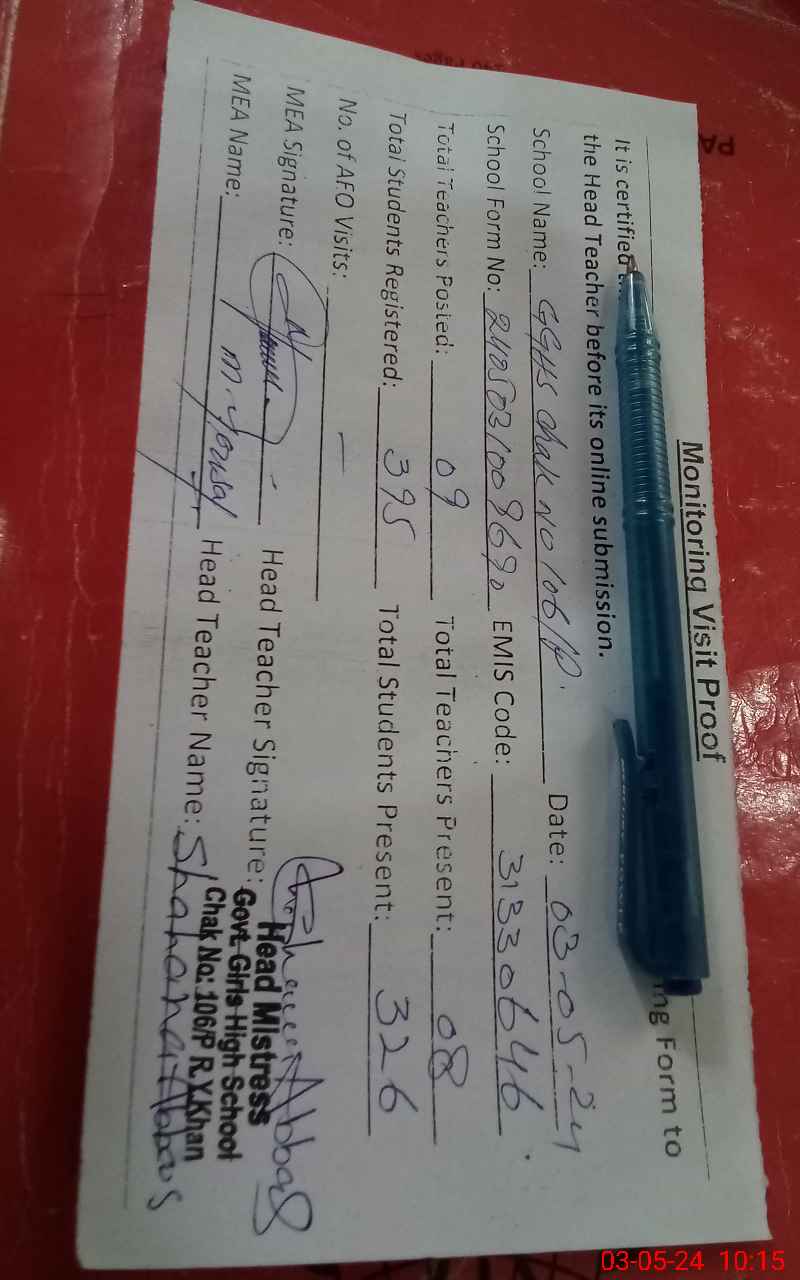 Monitoring Visit Proof
It is certified ing Form to
the Head Teacher before its online submission.
School Name: GGHS Chak No 106/P. Date: 03-05-24
School Form No: EMIS Code: 31330646
Total Teachers Posted: 09 Total Teachers Present: 08
Total Students Registered: 395 Total Students Present: 326
No. of AEO Visits: —
MEA Signature: Head Teacher Signature:
MEA Name: M. Yousaf Head Teacher Name: Shahana Abbas
Head Mistress
Govt. Girls High School
Chak No: 106/P R.Y.Khan
PA
03-05-24 10:15